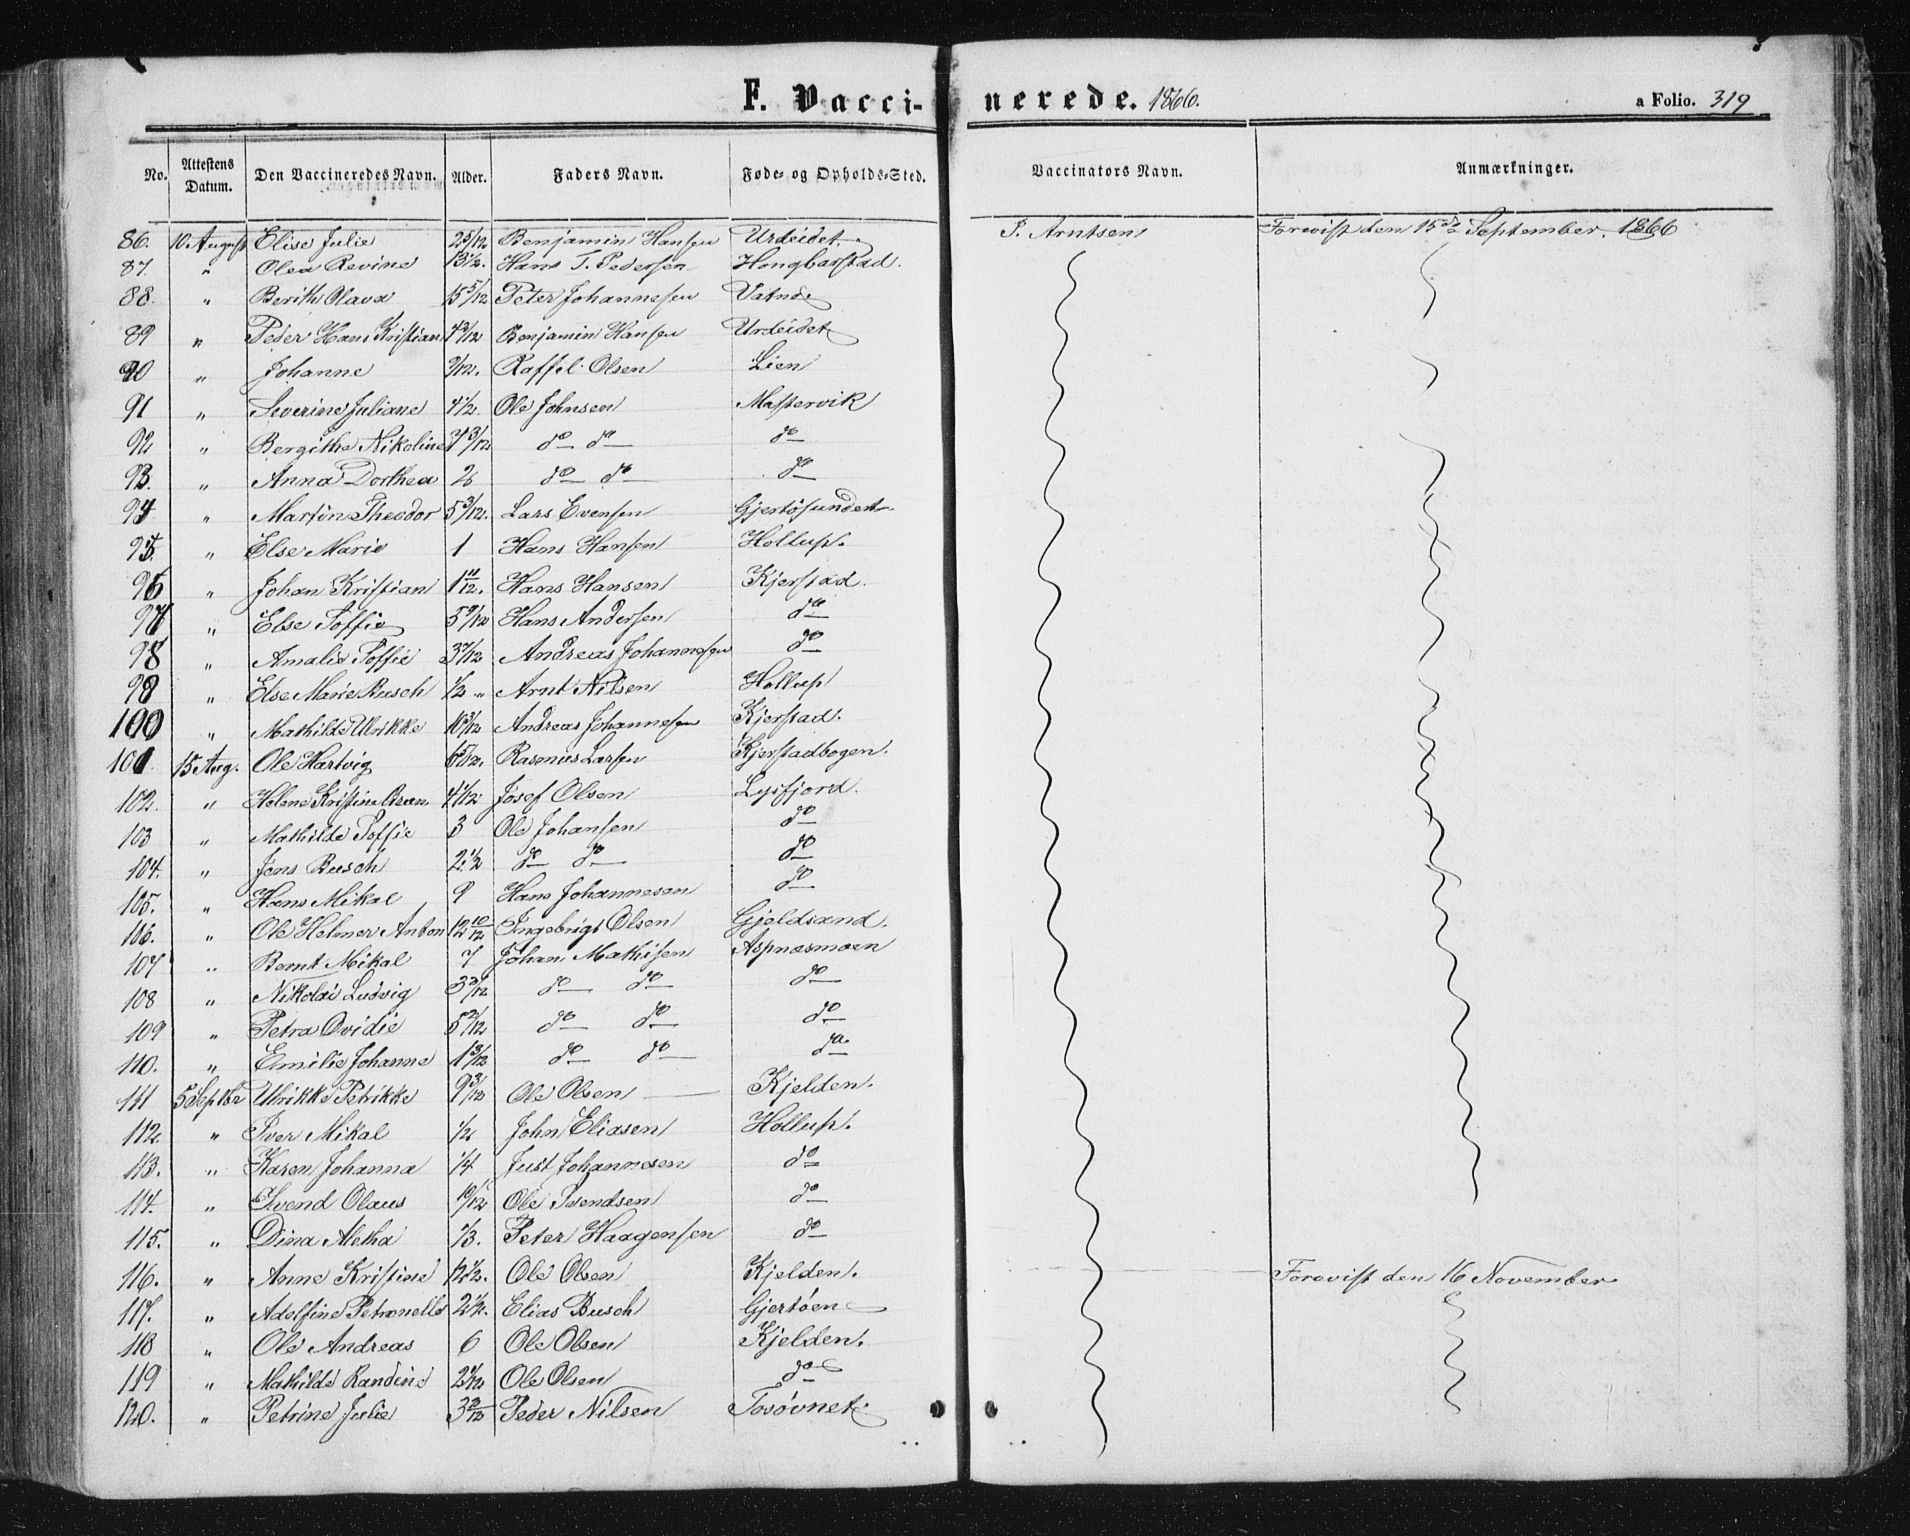 F. Vacci-nerede. 1866. a Folio. 319
No. Attestens Datum. Den Vaccineredes Navn. Alder. Faders Navn. Føde- og Opholds-Sted. Vaccinators Navn. Anmærkninger.
86. 10 August Elise Julie 2 5/12 Benjamin Hansen Urdeidet P. Arntsen Forevist den 15de September 1866
87. " Olea Revine 13 1/2. Hans T. Pedersen
88. " Berith Olava 15 5/12 Peter Johannesen Vatnde
89 " Peder Hans Kristian 4 3/12 Benjamin Hansen Urdeidet
90 " Johanne 9/12. Raffel Olsen Lien
91 " Severine Juliane 4 1/2. Ole Johnsen Mastervik
92 " Bergithe Nikoline 7 3/12 do do do
93. " Anna Dorthea 2 do do do
94 " Martin Theodor 5 3/12. Lars Evensen Gjertøsundet
95. " Else Marie 1 Hans Hansen Hollup.
96 " Johan Kristian 1 11/12. Hans Hansen Kjerstad.
97 " Else Soffie 5 9/12 Hans Andersen do
98 " Amalie Soffie 3 7/12 Andreas Johannesen do
99 " Else Marie Busch 1/2 " Arnt Nilsen Hollup
100 " Mathilde Ulrikke 10 3/12 Andreas Johannesen Kjerstad.
101 15 Aug. Ole Hartvig 6 5/12. Rasmus Larsen Kjerstadbogen.
102. " Helene Kristine 4 1/12 Josef Olsen Lysfjord.
103 " Mathilde Soffie 3 Ole Johansen do
104. " Jens Busch 2 1/2 do do do
105. " Hans Mikal 9 Hans Johannesen do
106. " Ole Helmer Anton 12 10/12 Ingebrigt Olsen Gjeldsand.
107 " Bernt Mikal 7 Johan Mathisen Aspnæsmoen
108 " Nikolai Ludvig 3 3/12 do do do
109 " Petra Ovidie 5 2/12 do do do
110. " Emilie Johanne 1 3/12 do do do
111 5 Septbr Ulrikke Petrikke 9 3/12 Ole Olsen Kjelden.
112. " Iver Mikal 1/2 John Eliasen Hollup.
113. " Karen Johanna 1/4 Just Johannesen do
114. " Svend Olaus 10/12 Ole Svendsen do
115. " Dina Aletha 1/3. Peter Haagensen do
116. " Anne Kristine 12 1/2. Ole Olsen Kjelden. Forevist den 16 November
117. " Adolfine Petronelle 2 1/2. Elias Busch Gjertøen
118 " Ole Andreas 6 Ole Olsen Kjelden.
119 " Mathilde Randine 2 4/12 Ole Olsen do
120. " Petrine Julie 3 2/12 Peder Nilsen Tosøvnet